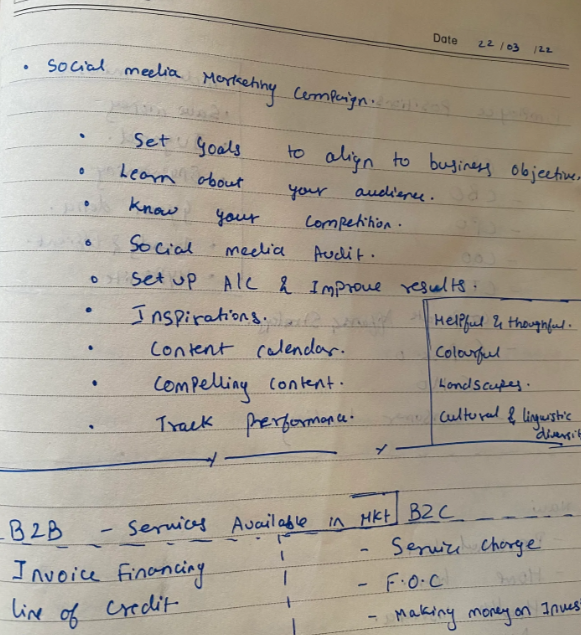 Date 22/03/22
• Social media Marketing Campaign.
• Set goals to align to business objective.
• Learn about your audience.
• Know your competition.
• Social media Audit.
• Set up A/C & Improve results.
• Inspirations.
• Content calendar.
• Compelling content.
• Track performance.
Helpful & thoughtful.
Colourful
Landscapes.
Cultural & linguistic
diversit
B2B - Services Available in Mkt B2C
Invoice Financing
Line of Credit
- Service charge
- F.O.C
- Making money on Inves